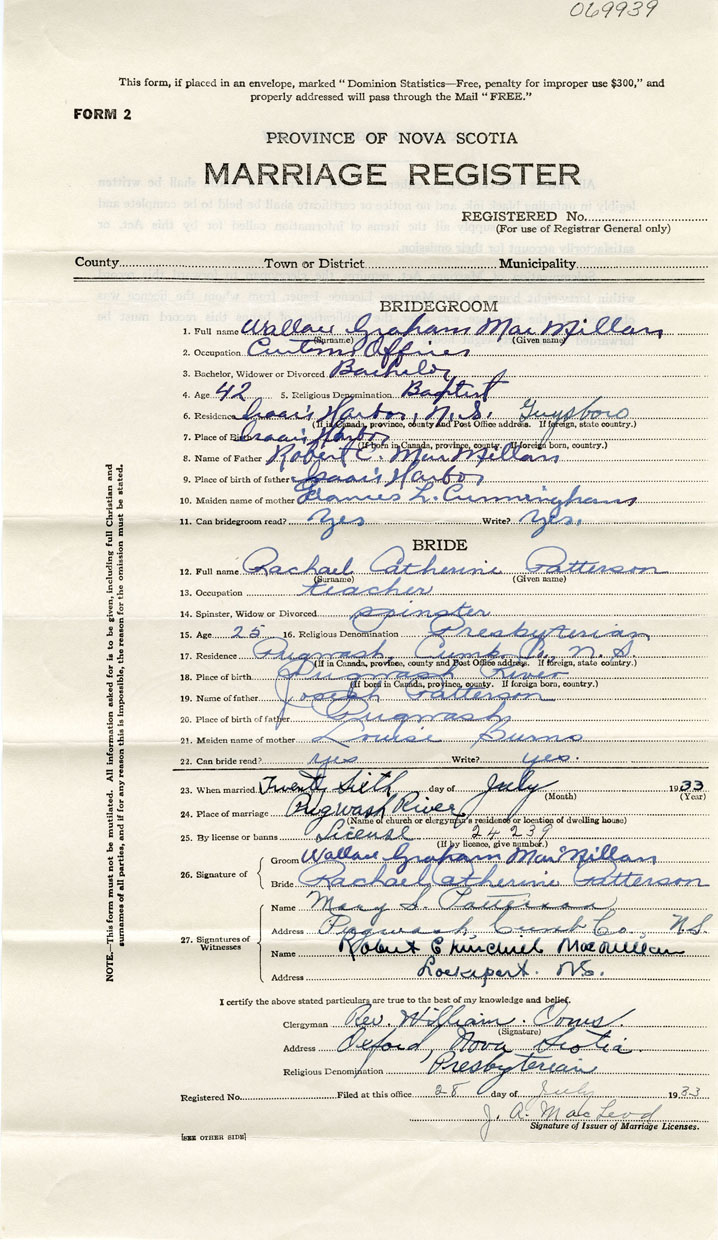 069939
This form, if placed in an envelope, marked "Dominion Statistics—Free, penalty for improper use $300," and
properly addressed will pass through the Mail "FREE."
FORM 2
PROVINCE OF NOVA SCOTIA
MARRIAGE REGISTER
REGISTERED No.
(For use of Registrar General only)
County Town or District Municipality
BRIDEGROOM
1. Full name Wallace Graham MacMillan
(Surname) (Given name)
2. Occupation Customs Officer
3. Bachelor, Widower or Divorced Bachelor
4. Age 42 5. Religious Denomination Baptist
6. Residence Isaac's Harbor, N.S. Guysboro
(If in Canada, province, county and Post Office address. If foreign, state country.)
7. Place of Birth Isaac's Harbor
(If born in Canada, province, county. If foreign born, country.)
8. Name of Father Robert C. MacMillan
9. Place of birth of father Isaac's Harbor
10. Maiden name of mother Frances L. Cunningham
11. Can bridegroom read? Yes Write? Yes.
BRIDE
12. Full name Rachael Catherine Patterson
(Surname) (Given name)
13. Occupation teacher
14. Spinster, Widow or Divorced spinster
15. Age 25 16. Religious Denomination Presbyterian
17. Residence Pugwash Cumb. Co. N.S.
(If in Canada, province, county and Post Office address. If foreign, state country.)
18. Place of birth Pugwash River
(If born in Canada, province, county. If foreign born, country.)
19. Name of father Joseph Patterson
20. Place of birth of father Pugwash
21. Maiden name of mother Louise Burns
22. Can bride read? yes Write? yes.
23. When married Twenty Sixth day of July 1933
(Month) (Year)
24. Place of marriage Pugwash River
(Name of church or clergyman's residence or location of dwelling house)
25. By license or banns License 24239
(If by licence, give number.)
26. Signature of
Groom Wallace Graham MacMillan
Bride Rachael Catherine Patterson
27. Signatures of Witnesses
Name Mary S. Patterson
Address Pugwash, Cumb Co., N.S.
Name Robert Churchill MacMillan
Address Lockeport. N.S.
I certify the above stated particulars are true to the best of my knowledge and belief.
Clergyman Rev. William
(Signature)
Address Oxford, Nova Scotia
Religious Denomination Presbyterian
Registered No. Filed at this office 28 day of July 1933
J. A. MacLeod
Signature of Issuer of Marriage Licenses.
[SEE OTHER SIDE]
NOTE.—This form must not be mutilated. All information asked for is to be given, including full Christian and
surnames of all parties, and if for any reason this is impossible, the reason for the omission must be stated.